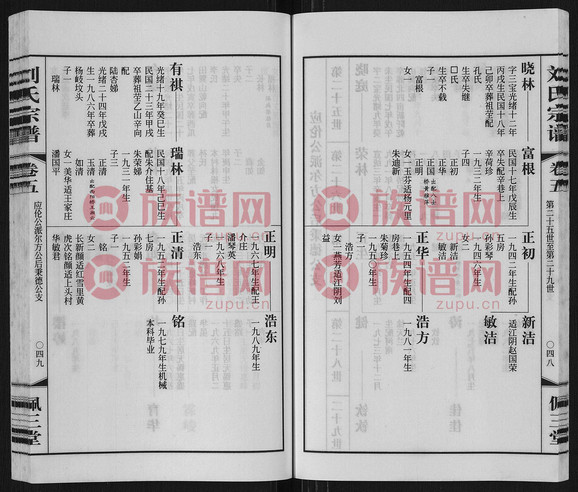 刘氏宗谱
卷五
第二十五世至第二十九世
〇四八
佩三堂
晓林
字三宝光绪十二年
丙戌生民国十八年
己卯卒葬祖茔配
孔氏
生卒失继
□氏
生卒不载
子一
富根
女一
富根
民国十七年戊辰生
卒失配辛巷上
辛荷珍
一九三二年生
子四
正初
正国
正华
正明
女一玉芬适杨元里
朱迪新
正初
一九四二年生配孙
巷
孙彩琴
一九四六年生
女二
新洁
敏洁
新洁
适江阴赵国荣
敏洁
正华
一九五四年生配四
房巷上
朱菊珍
一九五〇年生
子一
浩方
女一燕芳适江阴刘
益
浩方
一九八一年生
有祺
光绪十九年癸巳生
民国二十三年甲戌
卒葬祖茔乙山辛向
配
陆杏娣
光绪二十四年戊戌
生一九八六年卒葬
杨岐坟头
子一
瑞林
瑞林
民国十八年己巳生
配朱介住基
朱荣娣
一九三二年生
子三
正清
玉清
如清
女一美华适王家庄
潘国平
正明
一九六七年生配王
介庄
潘琴英
一九六八年生
子一
浩东
浩东
一九八九年生
正清
一九五二年生配孙
七房
孙彩娟
一九五二年生
子一
铭
女二
长新颜适红雪里黄
虎次铭颜适上天村
华敏君
铭
一九七九年生机械
本科毕业
刘氏宗谱
卷五
应伦公派尔万公后秉德公支
〇四九
佩三堂
族谱网
zupu.cn
族谱网
zupu.cn